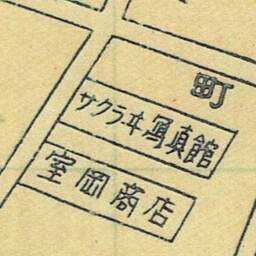 町
サクラヰ寫真館
室岡商店